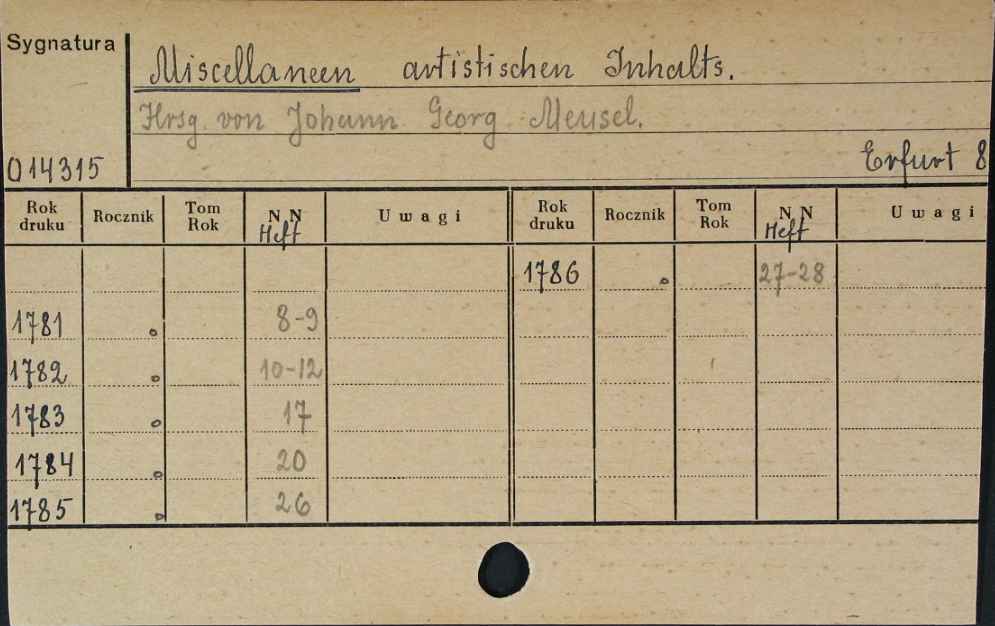 Sygnatura
Miscellaneen artistischen Inhalts.
Hrsg. von Johann Georg Meusel.
014315 Erfurt 8
Rok druku Rocznik Tom Rok NN Heft Uwagi Rok druku Rocznik Tom Rok NN Heft Uwagi
1786 27-28
1781 8-9
1782 10-12
1783 17
1784 20
1785 26